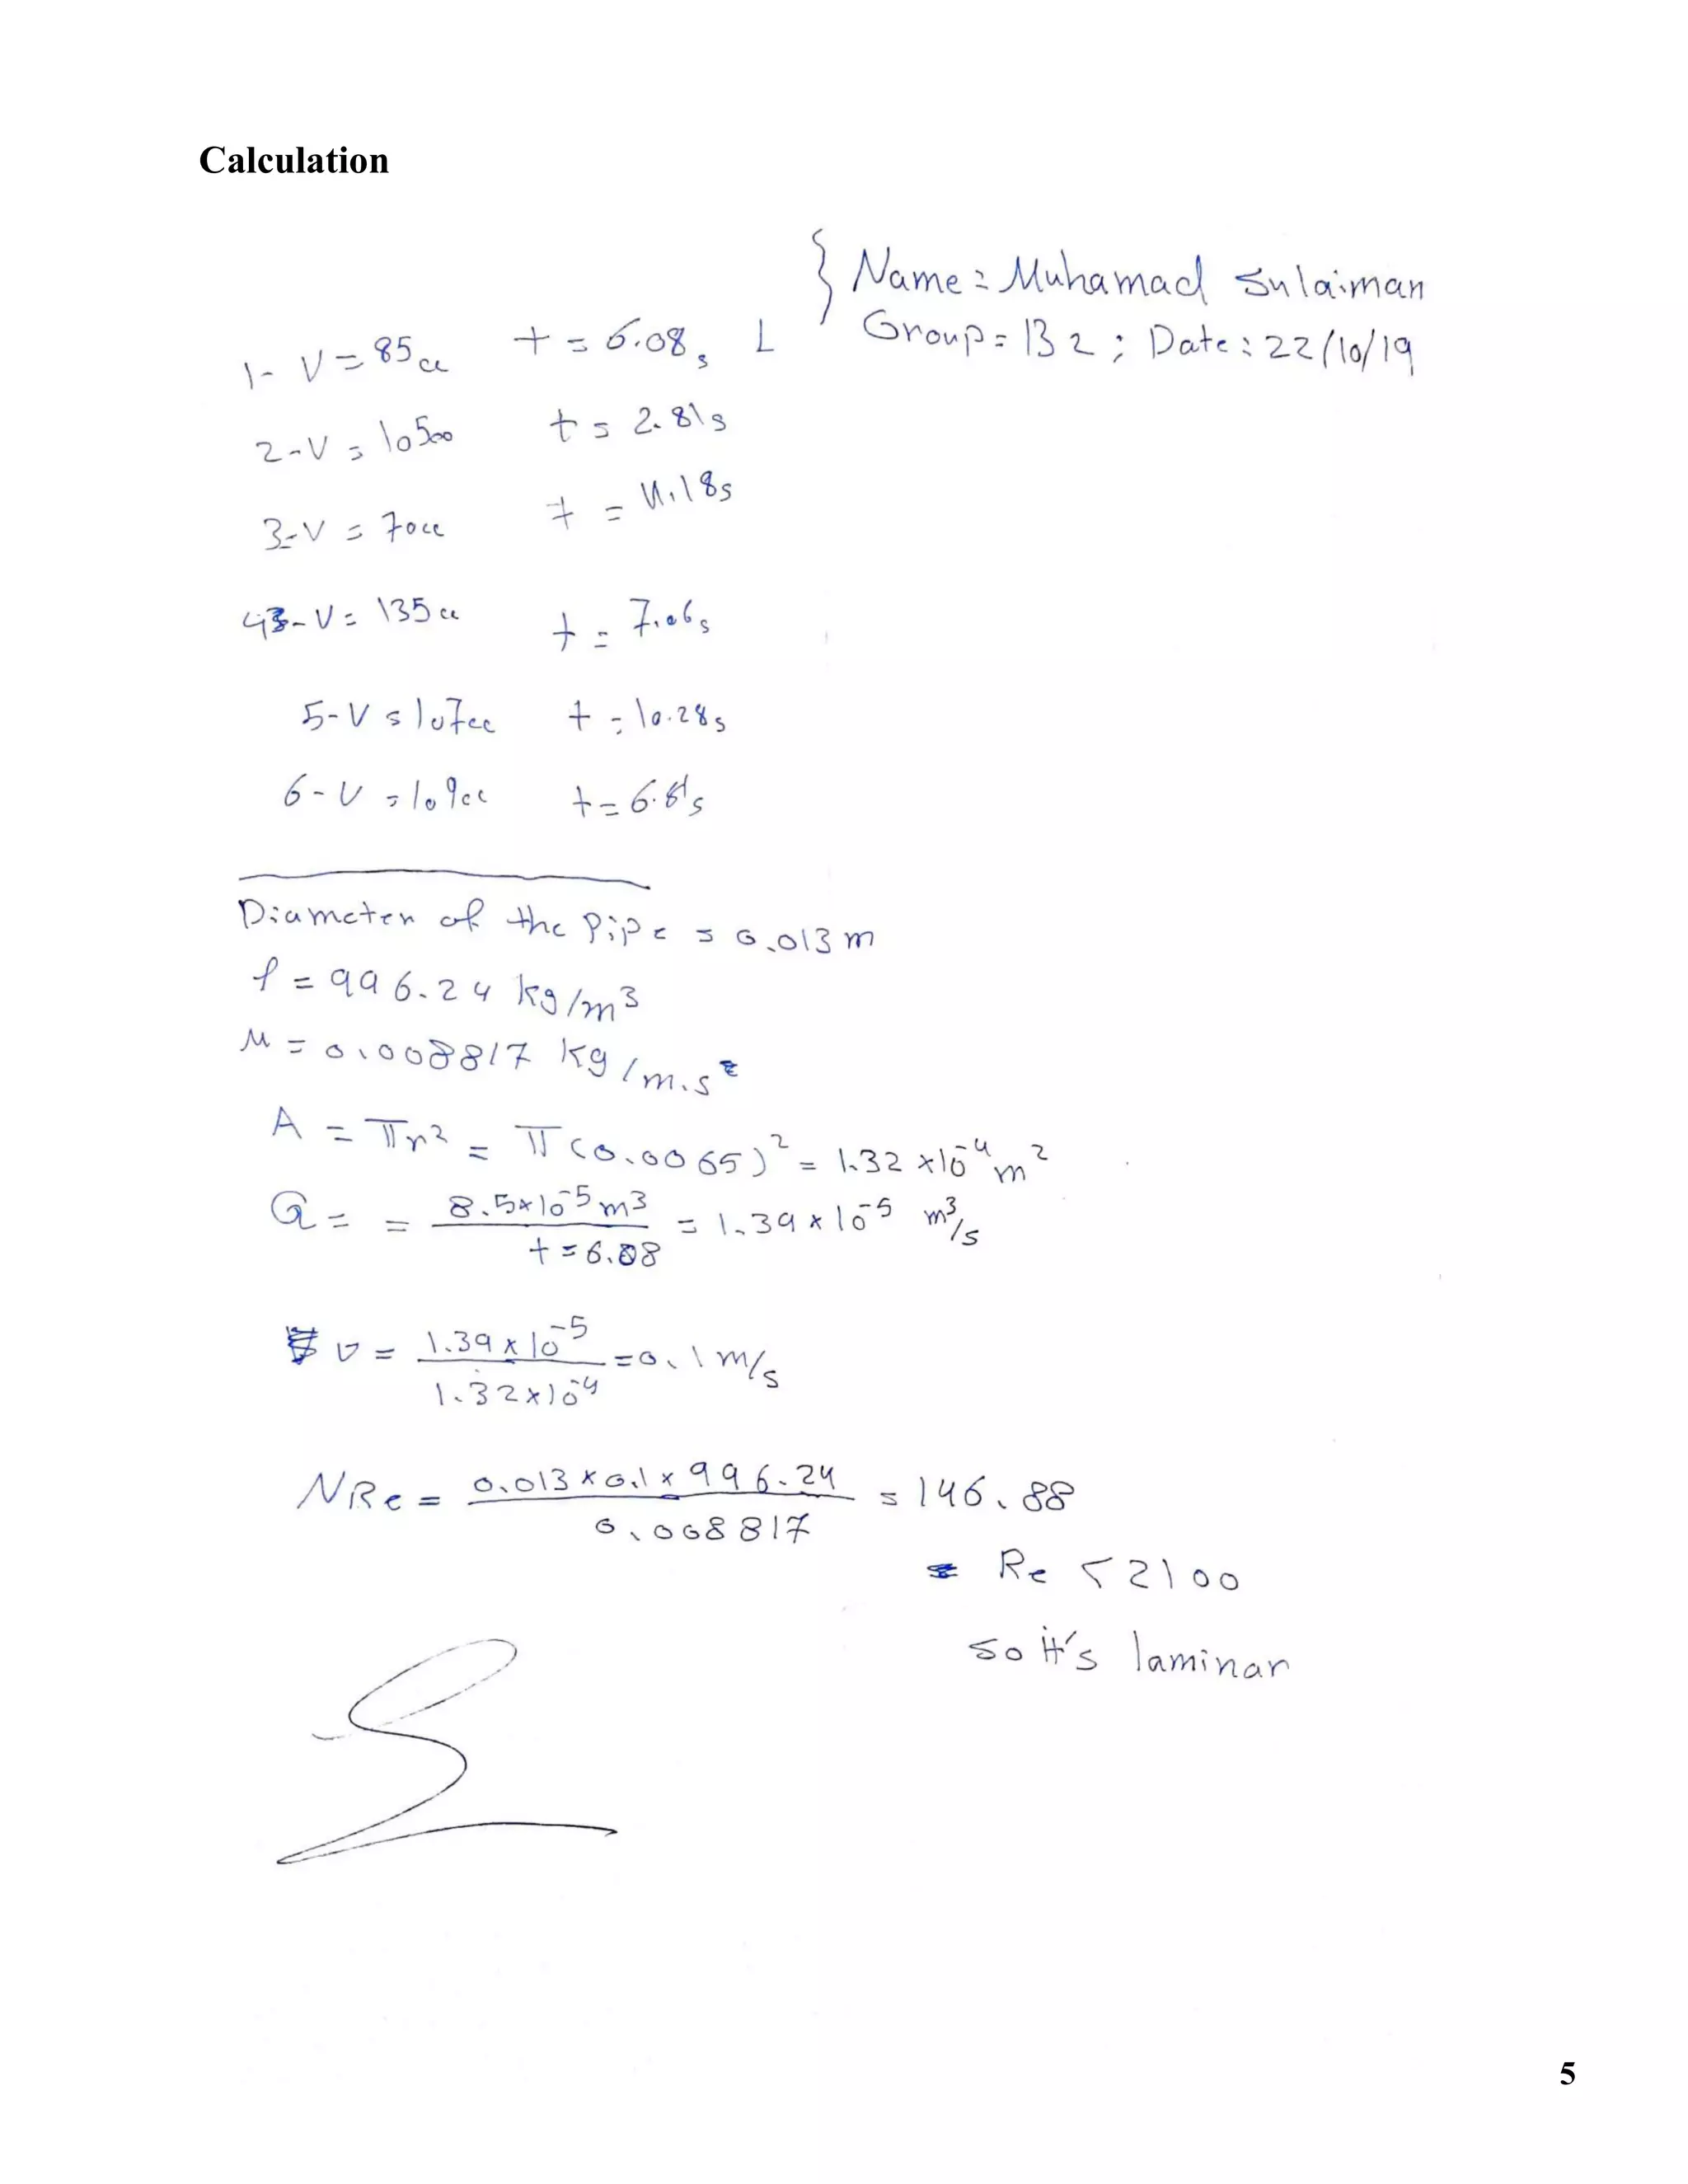 Calculation
} Name: Muhamad Sulaiman
Group= B2 ; Date: 22/10/19
1- V = 85cc t = 6.08s L
2-V = 105cc t = 2.81s
3-V = 70cc t = 4.18s
4-V= 135cc t = 7.06s
5-V = 107cc t = 10.28s
6-V = 109cc t = 6.81s
Diameter of the Pipe = 0.013 m
ρ = 996.24 kg/m³
μ = 0.008817 kg/m.s
A = πr² = π(0.0065)² = 1.32 x10⁻⁴ m²
Q = = 8.5x10⁻⁵m³ / t=6.08 = 1.39 x 10⁻⁵ m³/s
v = 1.39 x 10⁻⁵ / 1.32x10⁻⁴ = 0.1 m/s
NRe = 0.013 x 0.1 x 996.24 / 0.008817 = 146.88
Re < 2100
so it's laminar
5